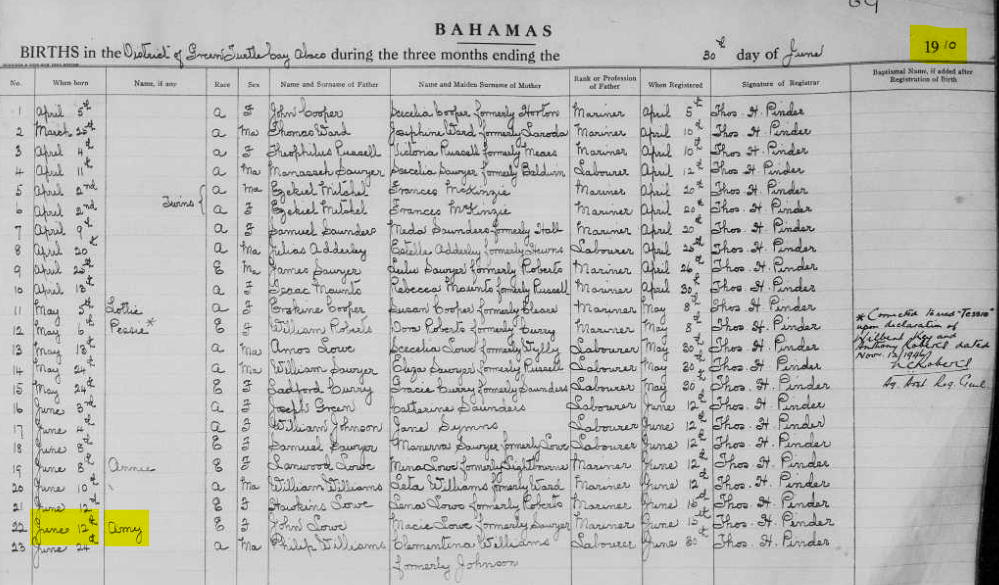 BAHAMAS
BIRTHS in the District of Green Turtle Cay Abaco during the three months ending the 30th day of June 1910
No. When born Name, if any Race Sex Name and Surname of Father Name and Maiden Surname of Mother Rank or Profession of Father When Registered Signature of Registrar Baptismal Name, if added after Registration of Birth
1 April 5th a F John Cooper Cecelia Cooper formerly Horton Mariner April 5th Thos. H. Pinder
2 March 25th a Ma Thomas Ward Josephine Ward formerly Mariner April 10th Thos. H. Pinder
3 April 4th a F Theophilus Russell Victoria Russell formerly Mears Mariner April 10th Thos. H. Pinder
4 April 11th a Ma Manasseh Sawyer Cecelia Sawyer formerly Baldwin Labourer April 12th Thos. H. Pinder
5 April 2nd Twins a Ma Ezekiel Mitchel Frances McKinzie Mariner April 20th Thos. H. Pinder
6 April 2nd a F Ezekiel Mitchel Frances McKinzie Mariner April 20th Thos. H. Pinder
7 April 9th a F Samuel Saunders Meda Saunders formerly Hall Mariner April 20th Thos. H. Pinder
8 April 20th a Ma Julias Adderley Estelle Adderley formerly Labourer April 25th Thos. H. Pinder
9 April 25th E Ma James Sawyer Lulu Sawyer formerly Roberts Mariner April 26th Thos. H. Pinder
10 April 13th a F Isaac Maunts Rebecca Maunts formerly Russell Mariner April 30th Thos. H. Pinder
11 May 5th Lottie a F Erskine Cooper Susan Cooper formerly Cleare Mariner May 8th Thos. H. Pinder
12 May 6th Pessie* E F William Roberts Dora Roberts formerly Curry Mariner May 8th Thos. H. Pinder
* Corrected to read "Tessie" upon declaration of Key and Anthony Roberts dated Nov.
13 May 13th a Ma Amos Lowe Scecelia Lowe formerly Wylly Labourer May 20th Thos. H. Pinder
14 May 24th a Ma William Sawyer Eliza Sawyer formerly Russell Labourer May 30th Thos. H. Pinder
15 May 24th E F Radford Curry Gracie Curry formerly Saunders Labourer May 30th Thos. H. Pinder
Ag. Asst Reg. Genl
16 June 3rd a F Joseph Green Catherine Saunders Labourer June 12th Thos. H. Pinder
17 June 4th a F William Johnson Jane Symns Labourer June 12th Thos. H. Pinder
18 June 8th E F Samuel Sawyer Manerva Sawyer formerly Lowe Labourer June 12th Thos. H. Pinder
19 June 8th Annie E F Lowe Mina Lowe formerly Lightbourne Mariner June 12th Thos. H. Pinder
20 June 10th a Ma William Williams Leta Williams formerly Ward Mariner June 12th Thos. H. Pinder
21 June 12th E F Hawkins Lowe Lena Lowe formerly Roberts Mariner June 15th Thos. H. Pinder
22 June 12th Amy E F John Lowe Macie Lowe formerly Sawyer Mariner June 15th Thos. H. Pinder
23 June 24th a Ma Philip Williams Clementina Williams Labourer June 30th Thos. H. Pinder
formerly Johnson